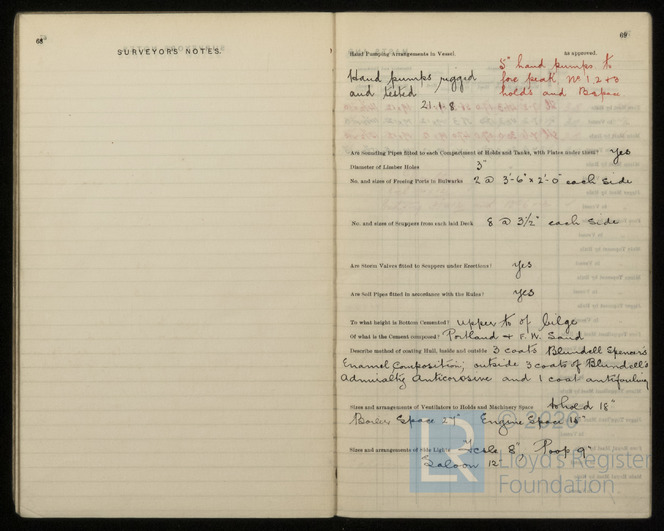 68
SURVEYORS' NOTES.
69
Hand Pumping Arrangements in Vessel.
As approved.
Hand pumps rigged
and tested
21.1.8.
5" hand pumps to
fore peak Nos 1, 2 + 3
holds and
Are Sounding Pipes fitted to each Compartment of Holds and Tanks, with Plates under them? Yes
Diameter of Limber Holes 3"
No. and sizes of Freeing Ports in Bulwarks 2 @ 3'-6" x 2'-0" each side
No. and sizes of Scuppers from each laid Deck 8 @ 3½" each side
Are Storm Valves fitted to Scuppers under Erections? Yes
Are Soil Pipes fitted in accordance with the Rules? Yes
To what height is Bottom Cemented? upper to of bilge
Of what is the Cement composed? Portland + F.W. Sand
Describe method of coating Hull, inside and outside 3 coats Blundell Spence's
Enamel Composition; outside 3 coats of Blundell's
Admiralty Anticorrosive and 1 coat antifouling
Sizes and arrangements of Ventilators to Holds and Machinery Space to hold 18"
Boiler Space 24" Engine Space 18"
Sizes and arrangements of Side Lights 8", Poop 9"
Saloon 12"
© 2026
LR
Lloyd's Register
Foundation